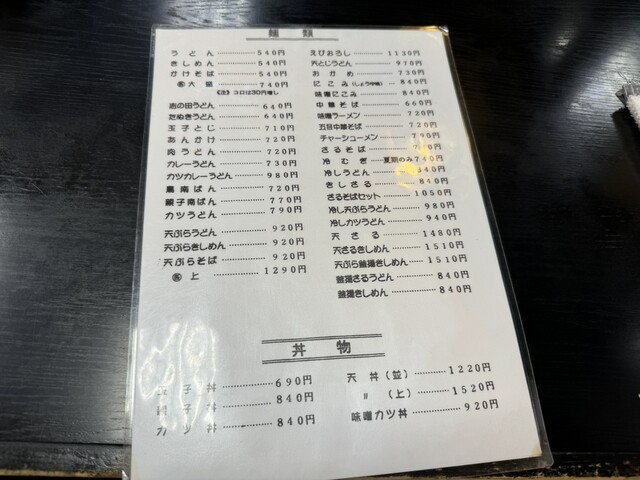 麺 類
うどん 540円
きしめん 540円
かけそば 540円
大盛 740円
コロは30円増し
志の田うどん 640円
たぬきうどん 640円
玉子とじ 710円
あんかけ 720円
肉うどん 720円
カレーうどん 730円
カツカレーうどん 980円
鳥南ばん 720円
親子南ばん 770円
カツうどん 790円
天ぷらうどん 920円
天ぷらきしめん 920円
天ぷらそば 920円
上 1290円
えびおろし 1130円
天とじうどん 970円
おかめ 730円
にこみ(しょうゆ味) 840円
味噌にこみ 840円
中華そば 660円
味噌ラーメン 720円
五目中華そば 720円
チャーシューメン 790円
ざるそば
冷むぎ 夏期のみ740円
冷しうどん 840円
きしざる 840円
ざるそばセット 1050円
冷し天ぷらうどん 980円
冷しカツうどん 940円
天ざる 1480円
天ざるきしめん 1510円
天ぷら釜揚きしめん 1510円
釜揚ざるうどん 840円
釜揚きしめん 840円
丼 物
玉子丼 690円
親子丼 840円
カツ丼 840円
天丼(並) 1220円
〃 (上) 1520円
味噌カツ丼 920円